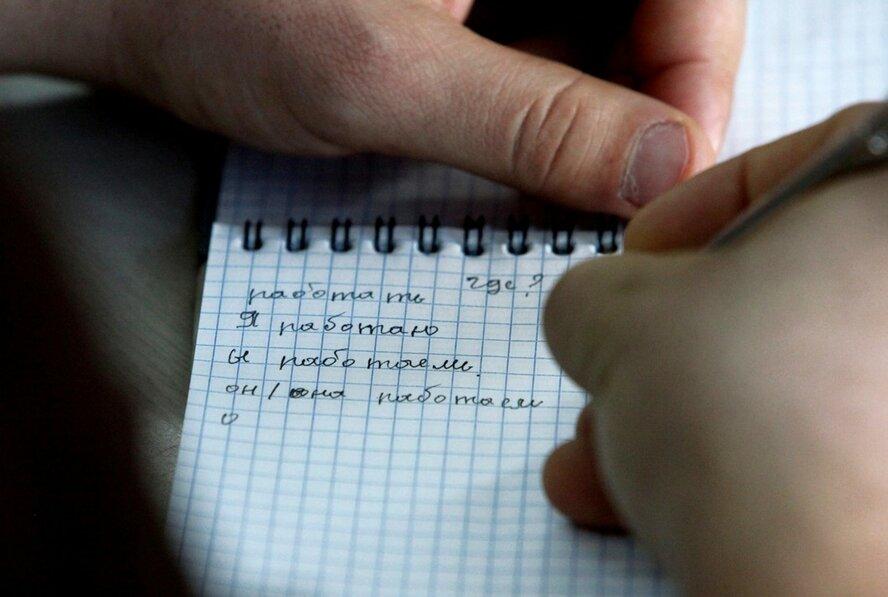 работать где?
я работаю
ы работаешь.
он/она работает
о